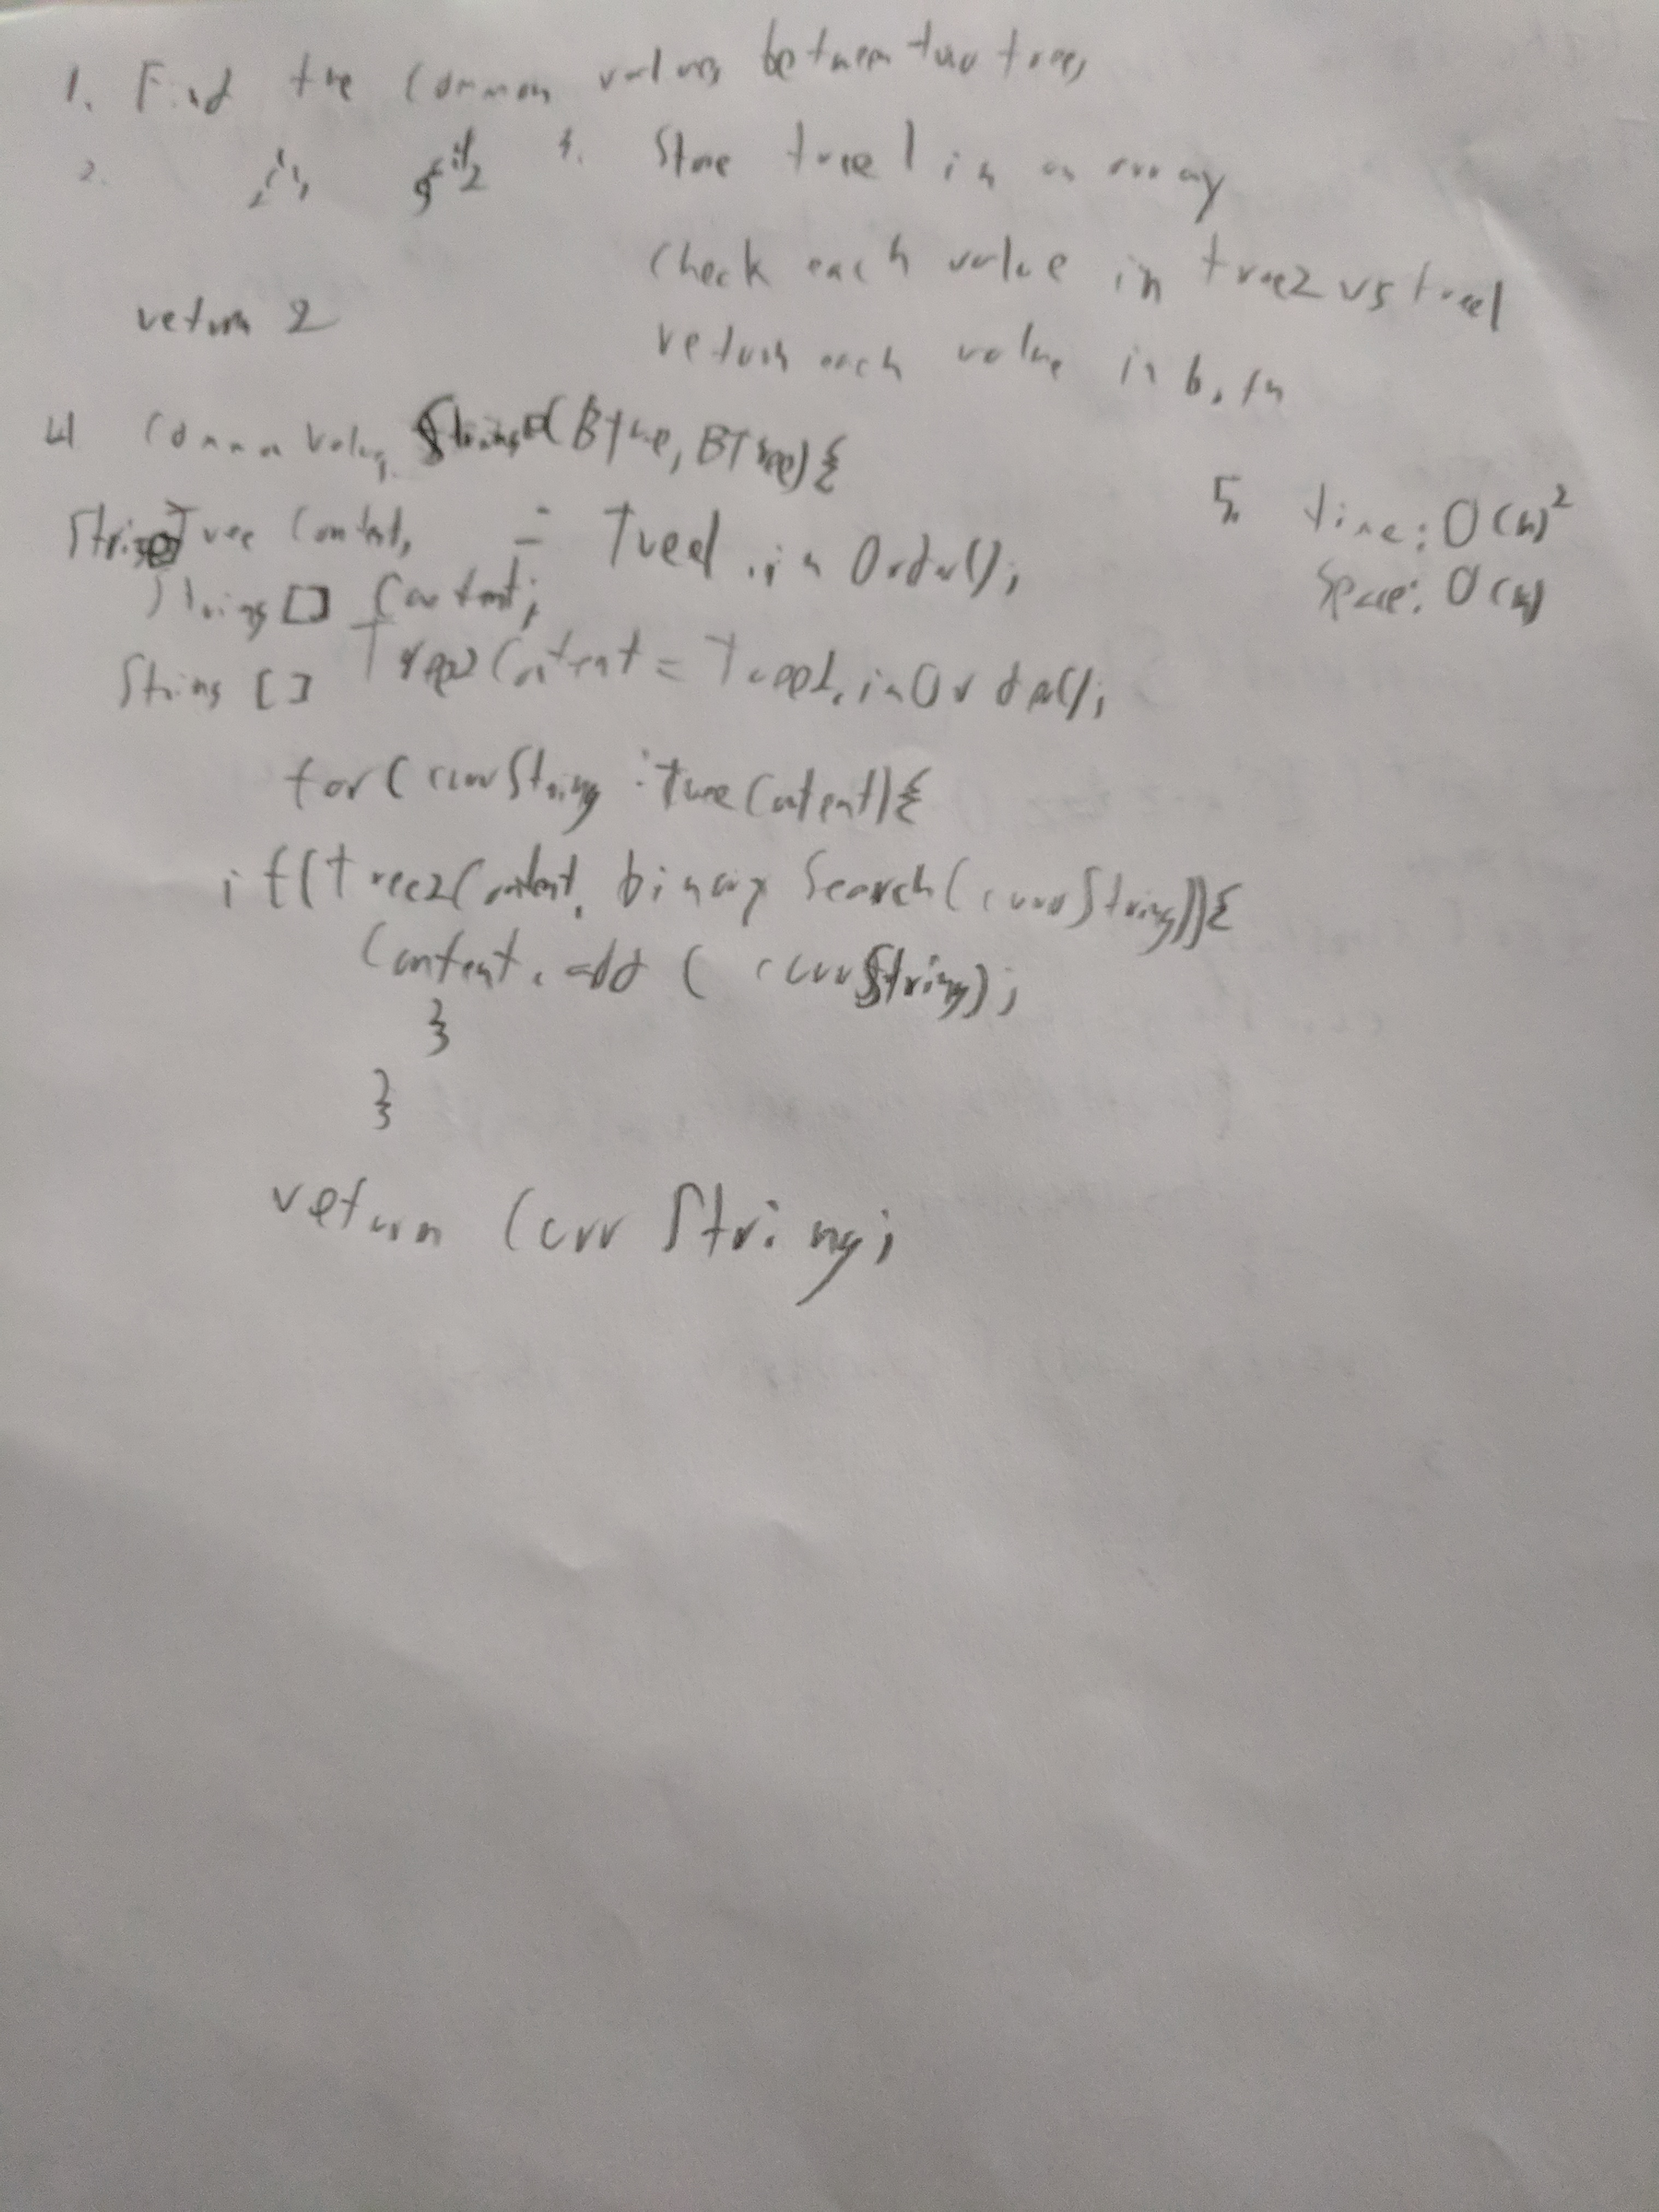 1. Find the common values between two trees
2.
3. Store tree 1 in an array
Check each value in tree2 vs tree1
return 2
return each value in both
4 Common Values Strings (BTree, BTree){
String Tree Content, = Tree1.inOrder();
Strings [] Content;
String [] Tree2Content = Tree2.inOrder();
for (currString : treeContent){
if(tree2Content.binary Search(currString)){
Content.add(currString);
}
}
return CurrString;
5. time: O(n)²
Space: O(n)